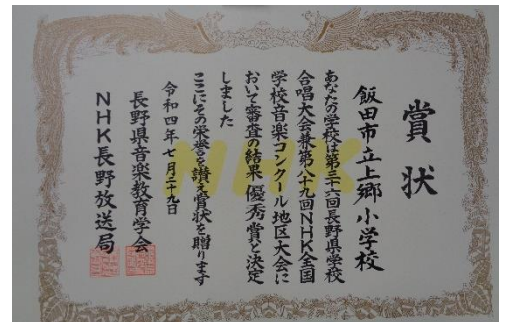 賞状
飯田市立上郷小学校
あなたの学校は第三十六回長野県学校
合唱大会兼第八十九回NHK全国
学校音楽コンクール地区大会に
おいて審査の結果優秀賞と決定
しました
ここにその栄誉を讃え賞状を贈ります
令和四年七月二十九日
長野県音楽教育学会
NHK長野放送局
NHK